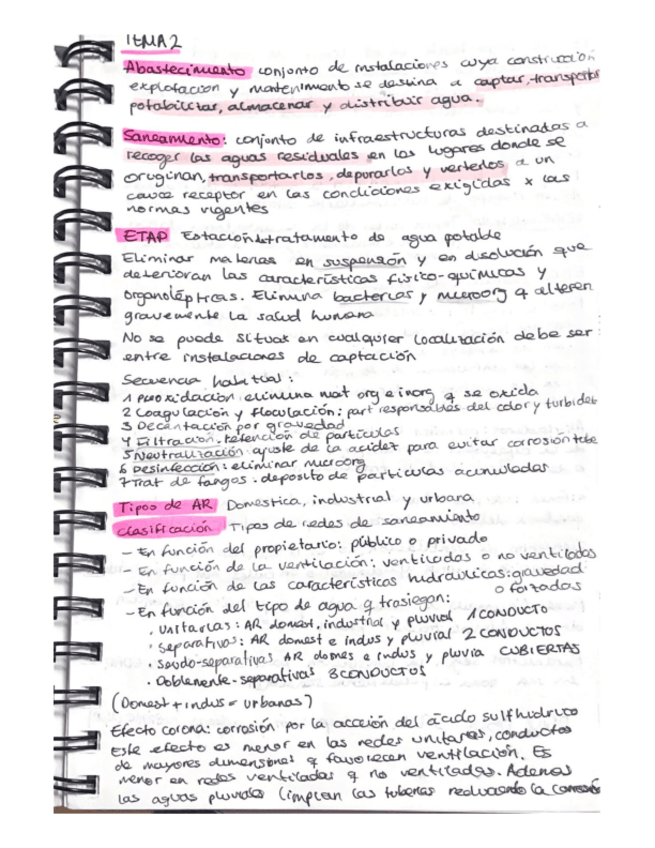 TEMA 2
Abastecimiento conjunto de instalaciones cuya construcción
explotación y mantenimiento se destina a captar, transportar
potabilizar, almacenar y distribuir agua.
Saneamiento: conjunto de infraestructuras destinadas a
recoger las aguas residuales en los lugares donde se
originan, transportarlos, depurarlos y verterlos a un
cauce receptor en las condiciones exigidas x las
normas vigentes
ETAP Estación de tratamiento de agua potable
Eliminar materias en suspensión y en disolución que
deterioran las características físico-químicas y
organolépticas. Elimina bacterias y microorg q alteren
gravemente la salud humana
No se puede situar en cualquier localización debe ser
entre instalaciones de captación
Secuencia habitual:
1 preoxidación: elimina mat org e inorg q se oxida
2 Coagulación y floculación: part responsables del color y turbidez
3 Decantación por gravedad
4 Filtración. retención de partículas
5 Neutralización. ajuste de la acidez para evitar corrosión tube
6 Desinfección: eliminar microorg
7 Trat de fangos. deposito de particulas acumuladas
Tipos de AR Domestica, industrial y urbana
clasificación Tipos de redes de saneamiento
- En función del propietario: público o privado
- En función de la ventilación: ventiladas o no ventiladas
- En función de las características hidráulicas: gravedad
o forzadas
- En función del tipo de agua q trasiegan:
· Unitarias: AR domest, industrial y pluvial 1 CONDUCTO
· Separativas: AR domest e indus y pluvial 2 CONDUCTOS
· Seudo-separativas AR domes e indus y pluvia CUBIERTAS
· Doblemente-separativas 3 CONDUCTOS
(Domest + indus = urbanas)
Efecto corona: corrosión por la acción del ácido sulfhídrico
Este efecto es menor en las redes unitarias, conductos
de mayores dimensiones q favorecen ventilación. Es
menor en redes ventiladas q no ventiladas. Además
las aguas pluviales limpian las tuberias reduciendo la corrosión